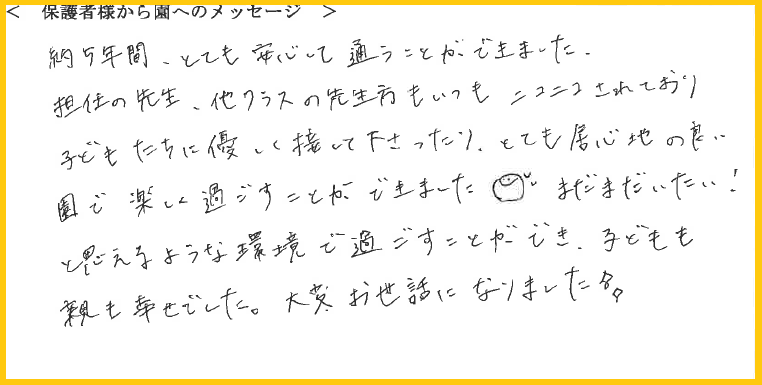 ＜　保護者様から園へのメッセージ　＞
約5年間、とても安心して通うことができました。
担任の先生、他クラスの先生方もいつもニコニコされており
子どもたちに優しく接して下さったり、とても居心地の良い
園で楽しく過ごすことができました まだまだいたい！
と思えるような環境で過ごすことができ、子どもも
親も幸せでした。大変お世話になりました